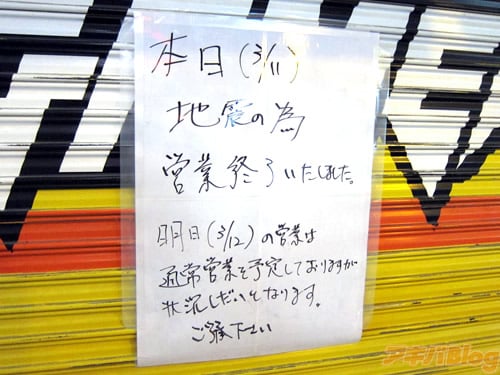 本日(3/11)
地震の為
営業終了いたしました。
明日(3/12)の営業は
通常営業を予定しておりますが
状況しだいとなります。
ご了承下さい
アキバBlog